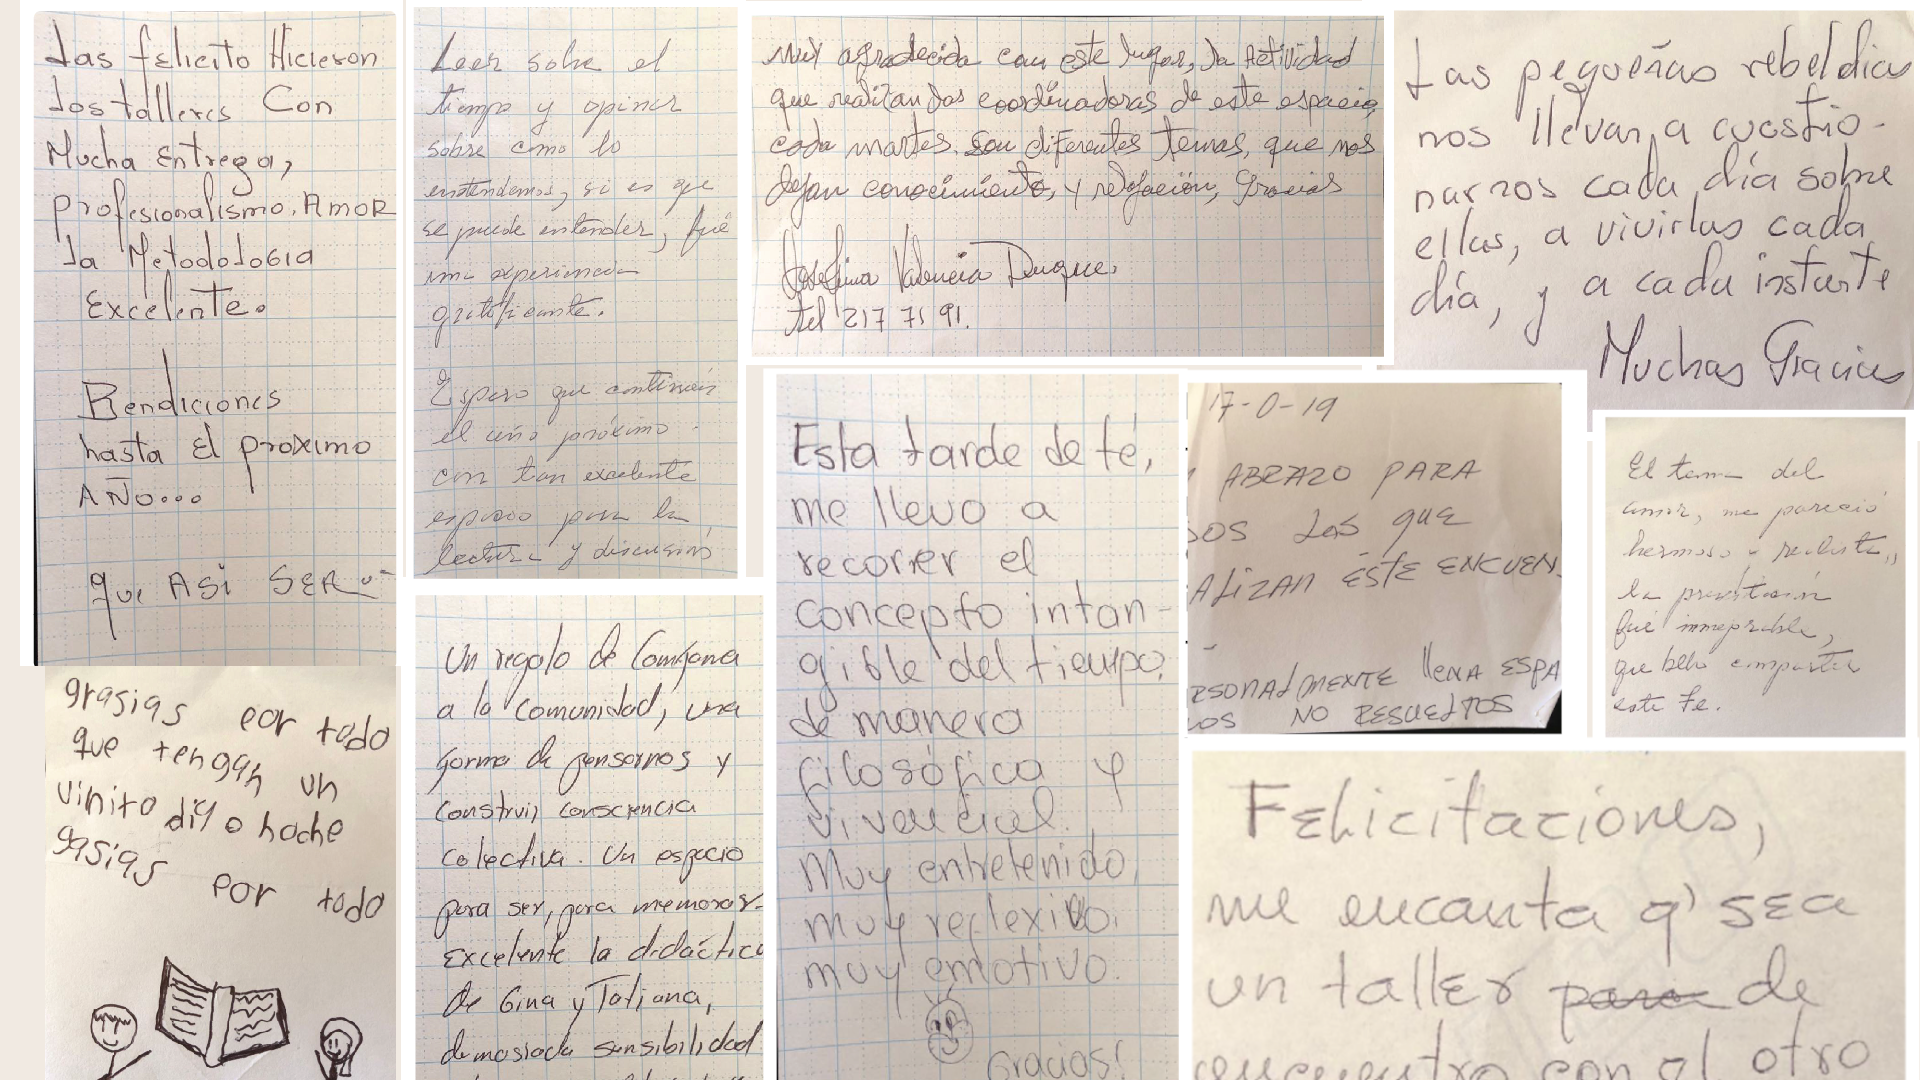 Las felicito Hicieron
Los talleres Con
Mucha Entrega,
profesionalismo. Amor
La Metodología
Excelente.
Bendiciones
hasta El proximo
AÑO...
que ASi SER
Leer sobre el
tiempo y opinar
sobre como lo
entendemos, si es que
se puede entender, fué
una experiencia
gratificante.
Espero que continúen
el año próximo
con tan excelente
espacio para la
lectura y discusión
Muy agradecida con este lugar, la Actividad
que realizan las coordinadoras de este espacio,
cada martes. Son diferentes temas, que nos
dejan conocimiento, y relajación, Gracias
Josefina Valencia Duque.
tel 217 71 91.
Las pequeñas rebeldias
nos llevan a cuestio-
narnos cada día sobre
ellas, a vivirlas cada
día, y a cada instante
Muchas Gracias
grasias por todo
que tengan un
vinito dia o hoche
gasias
por todo
Un regalo de Comfama
a la comunidad, una
forma de pensarnos y
construir consciencia
colectiva. Un espacio
para ser, para memorar-
Excelente la didáctica
de Gina y Tatiana,
demasiada sensibilidad
Esta tarde de té,
me llevo a
recorrer el
concepto intan-
gible del tiempo,
de manera
filosófica y
vivencial.
Muy entretenido,
muy reflexivo,
muy emotivo.
Gracias!
17-0-19
ABRAZO PARA
DOS LAS QUE
ALIZAN ÉSTE ENCUEN
RSONALMENTE LLENA ESPA
IOS NO RESUELTOS
El tema del
amor, me pareció
hermoso y realista,,
la presentación
fué inmejorable,
que bello compartir
este Te.
Felicitaciones,
me encanta q' sea
un taller para de
encuentro con el otro